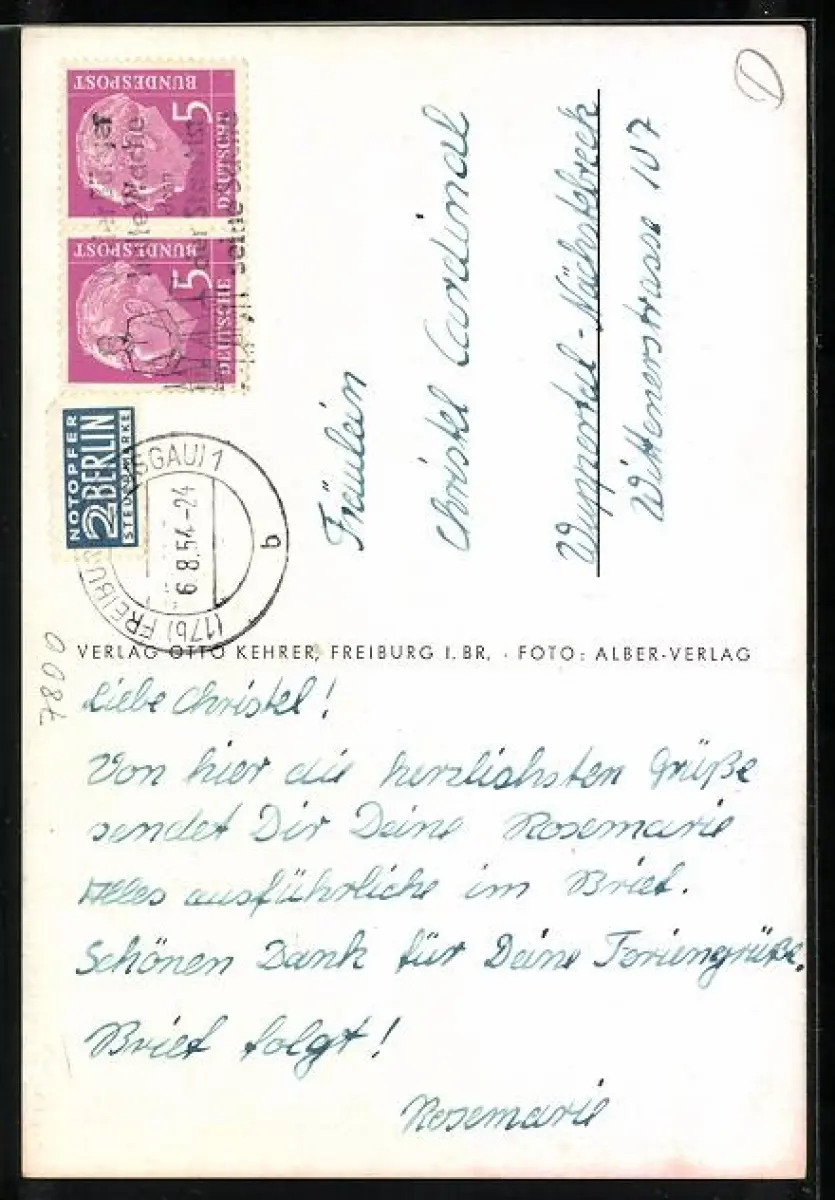 BUNDESPOST
5
DEUTSCHE
BUNDESPOST
5
DEUTSCHE
NOTOPFER
2 BERLIN
STEUERMARKE
(17b) FREIBURG
SGAU) 1
6.8.54.-24
b
D
Fräulein
Christel Cardinal
Wuppertal-Nächstebreck
Wittenerstrasse 107
7800
VERLAG OTTO KEHRER, FREIBURG I. BR. · FOTO: ALBER-VERLAG
Liebe Christel!
Von hier die herzlichsten Grüße
sendet Dir Deine Rosemarie
Alles ausführliche im Brief.
Schönen Dank für Deine Feriengrüße.
Brief folgt!
Rosemarie